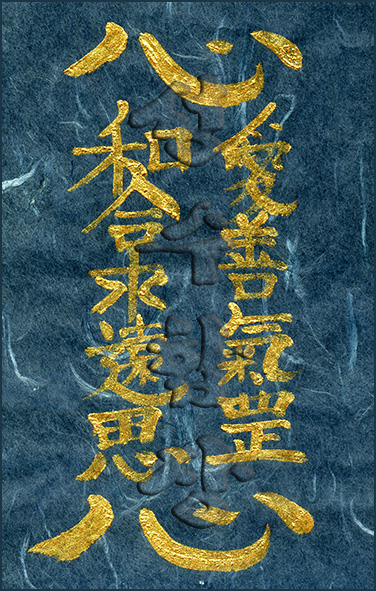 心
愛善氣罡
和合永遠思
心